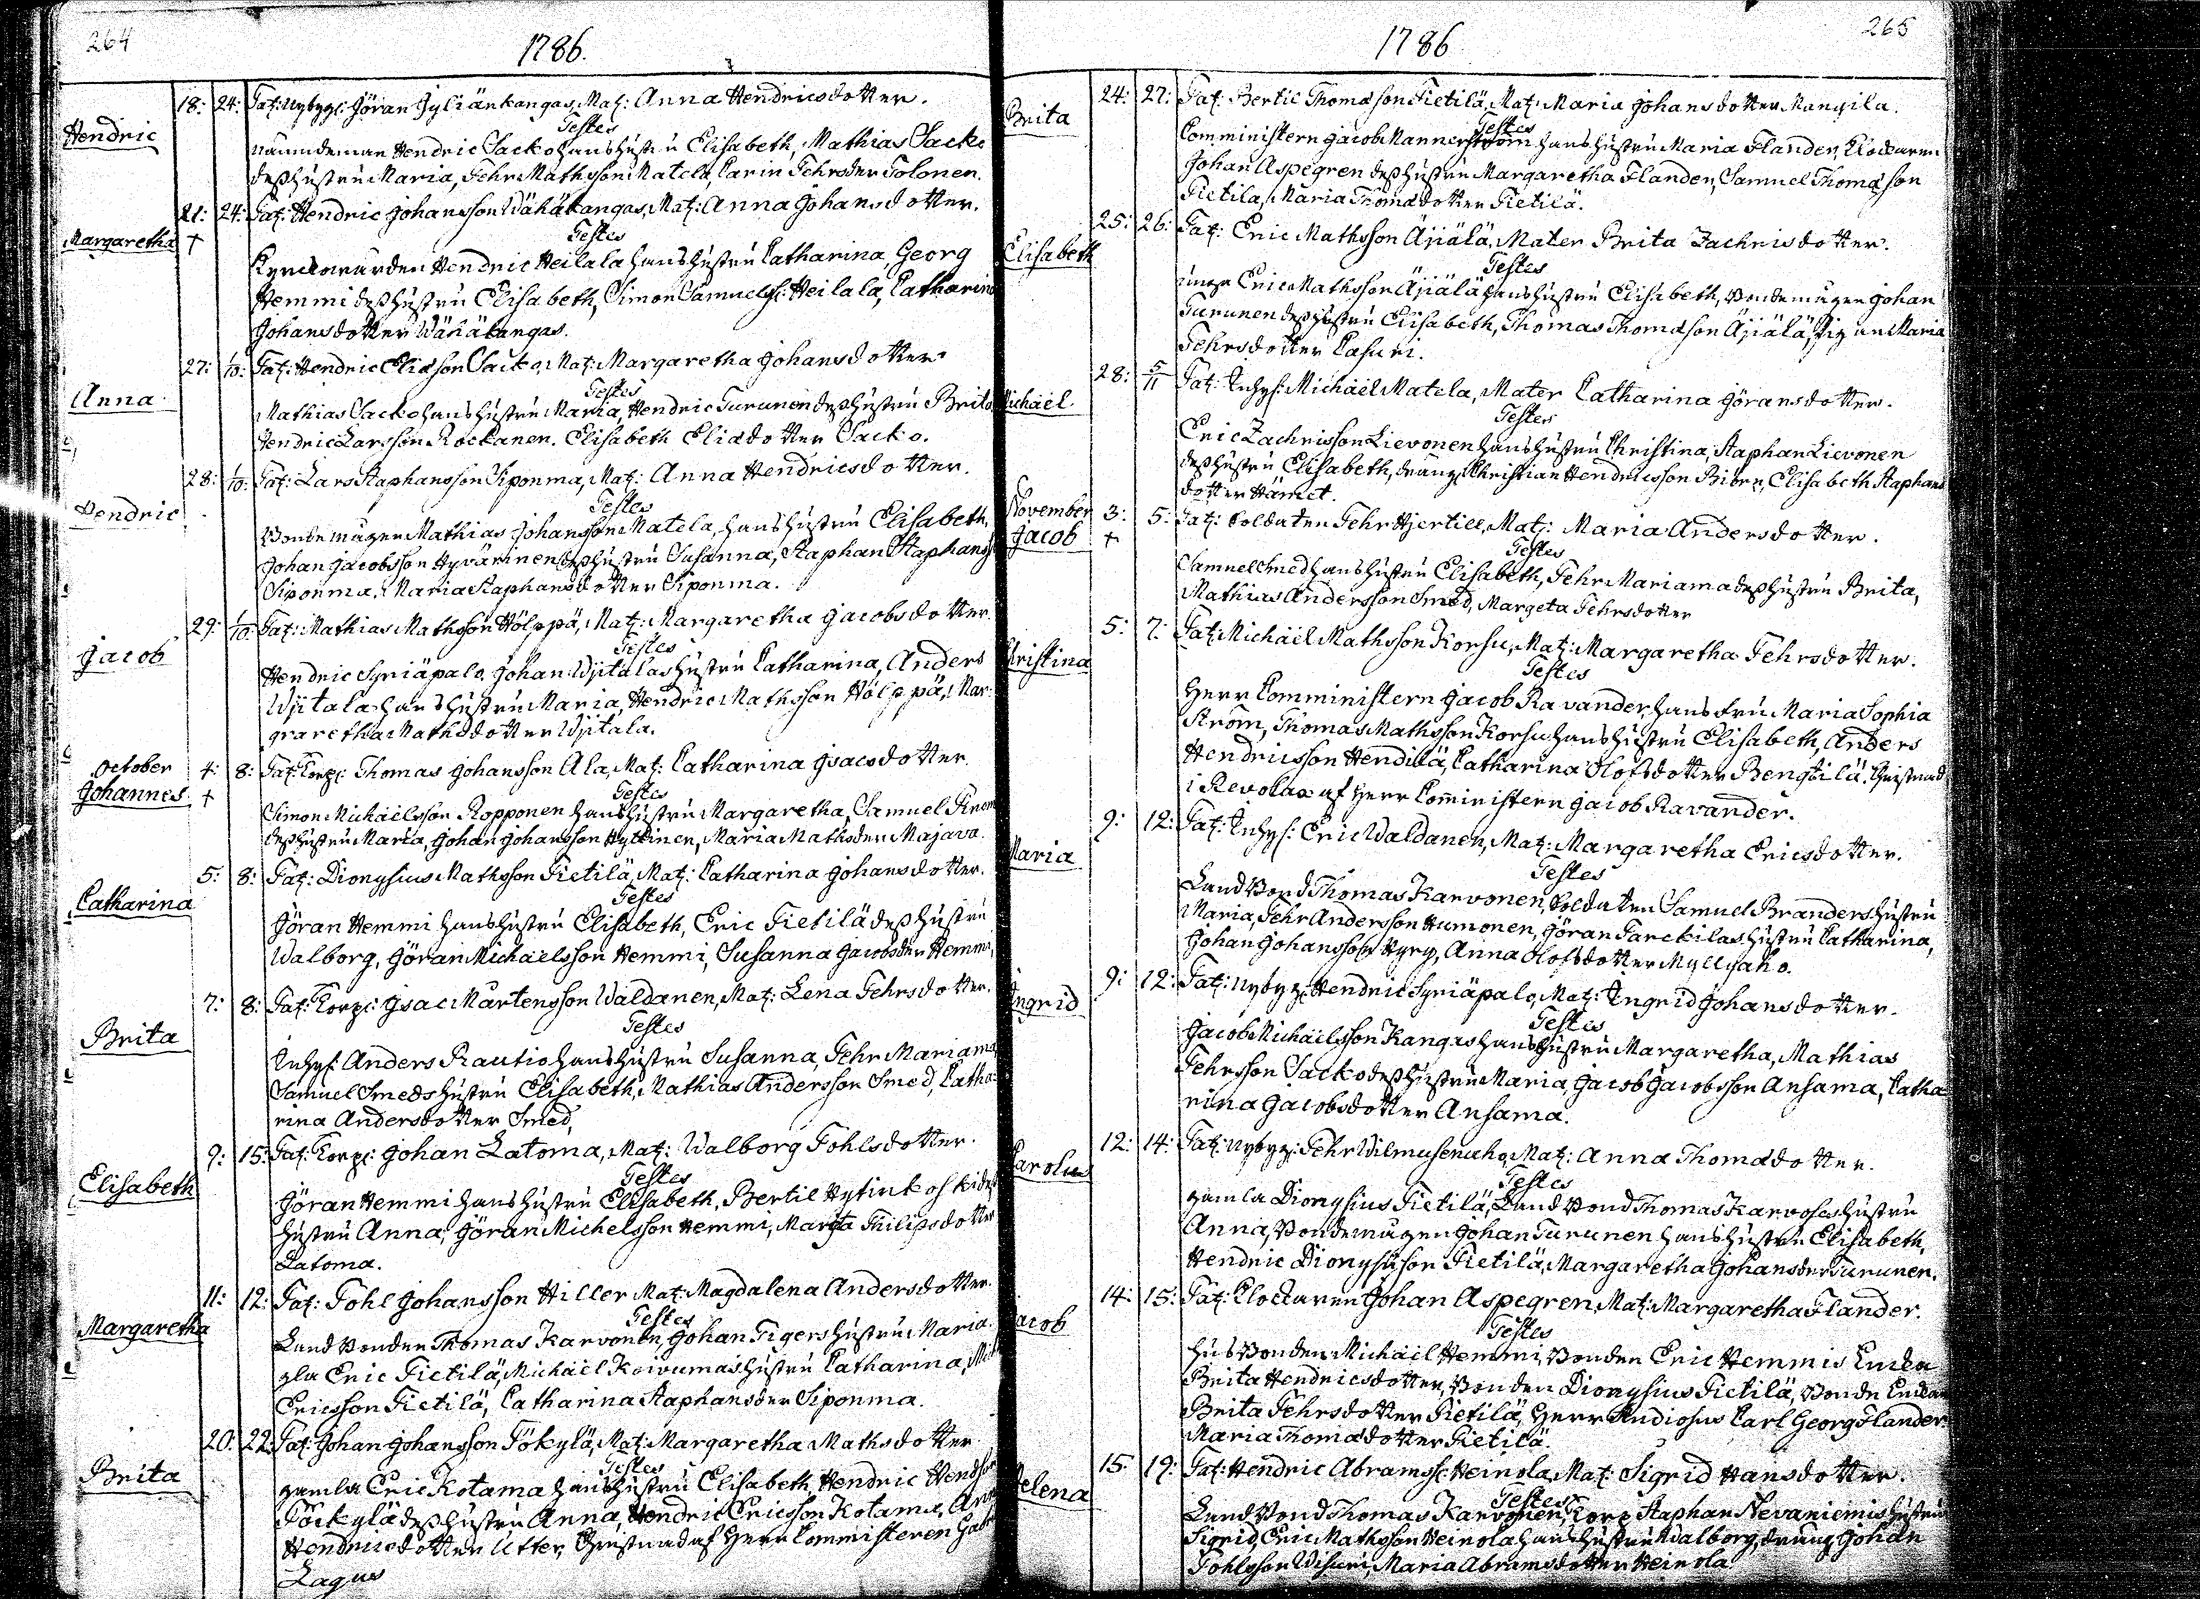 264
1786.
Hendric 18: 24: Pat: nybygg: Göran Jyliänkangas, Mat: Anna Hendricsdotter.
Testes
nämndeman Hendric Sacko hans hustru Elisabeth, Mathias Sacko
dess hustru Maria, Pehr Mathsson Matela, Carin Pehrsder Tolonen.
Margaretha † 21: 24: Pat: Hendric Johansson Wähäkangas, Mat: Anna Johansdotter.
Testes
Kyrckovärden Hendric Heilala hans hustru Catharina, Georg
Hemmi dess hustru Elisabeth, Simon Samuelss: Heilala, Catharina
Johansdotter Wähäkangas.
Anna 27: 1/10: Pat: Hendric Eliasson Sacko, Mat: Margaretha Johansdotter
Testes
Mathias Sacko hans hustru Maria, Hendric Turunen dess hustru Brita
Hendric Larsson Rockanen. Elisabeth Eliadotter Sacko.
Hendric 28: 1/10: Pat: Lars Staphansson Siponma, Mat: Anna Hendricsdotter.
Testes
Bondemågen Mathias Johansson Matela, hans hustru Elisabeth,
Johan Jacobsson Hyvärinen dess hustru Susanna, Staphan Staphanss:
Siponma, Maria Staphansdotter Siponma.
Jacob 29: 1/10: Pat: Mathias Mathsson Hölppä, Mat: Margaretha Jacobsdotter
Testes
Hendric Syriäpalo, Johan Wjitalas hustru Catharina, Anders
Wjitala hans hustru Maria, Hendric Mathsson Hölppä, Mar-
garetha Mathsdotter Wjitala.
October
Johannes † 4: 8: Pat: Torp: Thomas Johansson Ala, Mat: Catharina Isacsdotter
Testes
Simon Michaëlsson Ropponen hans hustru Margaretha, Samuel
dess hustru Maria, Johan Johansson Hyttinen, Maria Mathsder Majava.
Catharina 5: 8: Pat: Dionysius Mathsson Pietilä, Mat: Catharina Johansdotter.
Testes
Göran Hemmi hans hustru Elisabeth, Eric Pietilä dess hustru
Walborg, Göran Michaelsson Hemmi, Susanna Jacobsder Hemmi,
Brita 7: 8: Pat: Torp: Isac Mårtensson Waldanen, Mat: Lena Pehrsdotter.
Testes
Inhys: Anders Rautio hans hustru Susanna, Pehr Mariama,
Samuel Smeds hustru Elisabeth, Mathias Andersson Smed, Catha-
rina Andersdotter Smed,
Elisabeth 9: 15: Pat: Torp: Johan Latoma, Mat: Walborg Pohlsdotter.
Testes
Göran Hemmi hans hustru Elisabeth, Bertil Hytinkoski dess
hustru Anna, Göran Michelsson Hemmi, Marita Philipsdotter
Latoma.
Margaretha 11: 12: Pat: Pohl Johansson Hiller Mat: Magdalena Andersdotter.
Testes
Landbonden Thomas Karvonen, Johan Tigers hustru Maria.
gla Eric Pietilä, Michaël Koivumas hustru Catharina,
Ericsson Pietilä, Catharina Staphansder Siponma.
Brita 20: 22: Pat: Johan Johansson Pökylä, Mat: Margaretha Mathsdotter
Testes
gamla Eric Kotama hans hustru Elisabeth, Hendric Hendsson
Pöckylä dess hustru Anna, Hendric Ericsson Kotama, Anna
Hendricsdotter Utter, Christnad af Herr Comministeren Gabr
Lagus
265
1786
Brita 24: 27: Pat: Bertil Thomasson Pietilä, Mat: Maria Johansdotter Mangila.
Testes
Comministern Jacob Mannerström hans hustru Maria Flander, Klockaren
Johan Aspegren dess hustru Margaretha Flander, Samuel Thomasson
Pietila, Maria Thomadotter Pietilä.
Elisabeth 25: 26: Pat: Eric Mathsson Äjiälä, Mater Brita Zachrisdotter.
Testes
unga Eric Mathsson Äjiälä hans hustru Elisabeth, Bondemågen Johan
Turunen dess hustru Elisabeth, Thomas Thomasson Äjiälä, Pigan Maria
Pehrsdotter Casuri.
Michaël 28: 5/11 Pat: Inhys: Michaël Matela, Mater Catharina Göransdotter.
Testes
Eric Zachrisson Lievonen hans hustru Christina, Staphan Lievonen
dess hustru Elisabeth, dräng: Christian Hendricsson Biörn, Elisabeth Staphans
dotter Hämet.
November
Jacob † 3: 5: Pat: Soldaten Pehr Hjertill, Mat: Maria Andersdotter.
Testes
Samuel Smed hans hustru Elisabeth, Pehr Mariama dess hustru Brita,
Mathias Andersson Smed, Margeta Pehrsdotter
Christina 5: 7: Pat: Michaël Mathsson Korsu, Mat: Margaretha Pehrsdotter.
Testes
Herr Comministern Jacob Ravander, hans fru Maria Sophia
Ström, Thomas Mathsson Korsu hans hustru Elisabeth, Anders
Hendricsson Hendilä, Catharina Olofsdotter Bengtilä. Christnad
i Revolax af Herr Comministern Jacob Ravander.
Maria 9: 12: Pat: Inhys: Eric Waldanen, Mat: Margaretha Ericsdotter.
Testes
Landbond Thomas Karvonen, Soldaten Samuel Branders hustru
Maria, Pehr Andersson Humonen, Göran Parckilas hustru Catharina,
Johan Johansson Hyry, Anna Olofsdotter Myllyaho.
Ingrid 9: 12: Pat: nybyg: Hendric Syriäpalo, Mat: Ingrid Johansdotter.
Testes
Jacob Michaëlsson Kangas hans hustru Margaretha, Mathias
Pehrsson Sacko dess hustru Maria, Jacob Jacobsson Ansama, Catha
rina Jacobsdotter Ansama.
Carolus 12: 14: Pat: nybyg: Pehr Wilmusenaho, Mat: Anna Thomadotter.
Testes
gamla Dionysius Pietilä, Landbond Thomas Karvoses hustru
Anna, Bondemågen Johan Turunen hans hustru Elisabeth,
Hendric Dionysiison Pietilä, Margaretha Johansder Turunen.
Jacob 14: 15: Pat: Clockaren Johan Aspegren, Mat: Margaretha Flander.
Testes
husbonden Michaël Hemmi, Bonden Eric Hemmis Encka
Brita Hendricsdotter, Bonden Dionysius Pietilä, Bonde Enckan
Brita Pehrsdotter Pietilä, Herr Studiosus Carl Georg Flander.
Maria Thomadotter Pietilä.
Helena 15 19: Pat: Hendric Abramss: Heinola, Mat: Sigrid Hansdotter.
Testes
Landbond Thomas Karvonen, Torp: Staphan Nevaniemis hustru
Sigrid, Eric Mathsson Heinola hans hustru Walborg, dräng Johan
Pohlsson Wisuri, Maria Abramsdotter Heinola